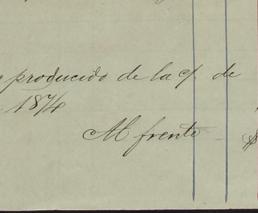 producido de la c/. de
1874
Al frente $